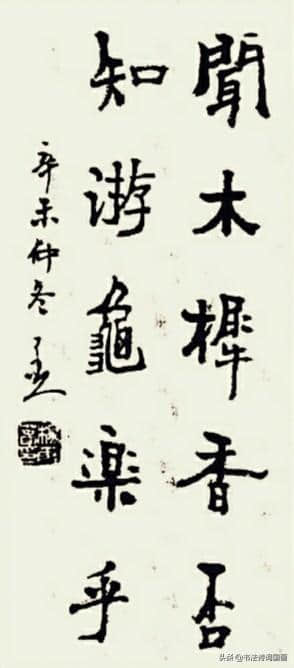 聞木樨香否
知游龜楽乎
辛未仲冬
头条 @书法诗词国画